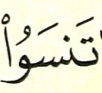 تَنسَوُا۟